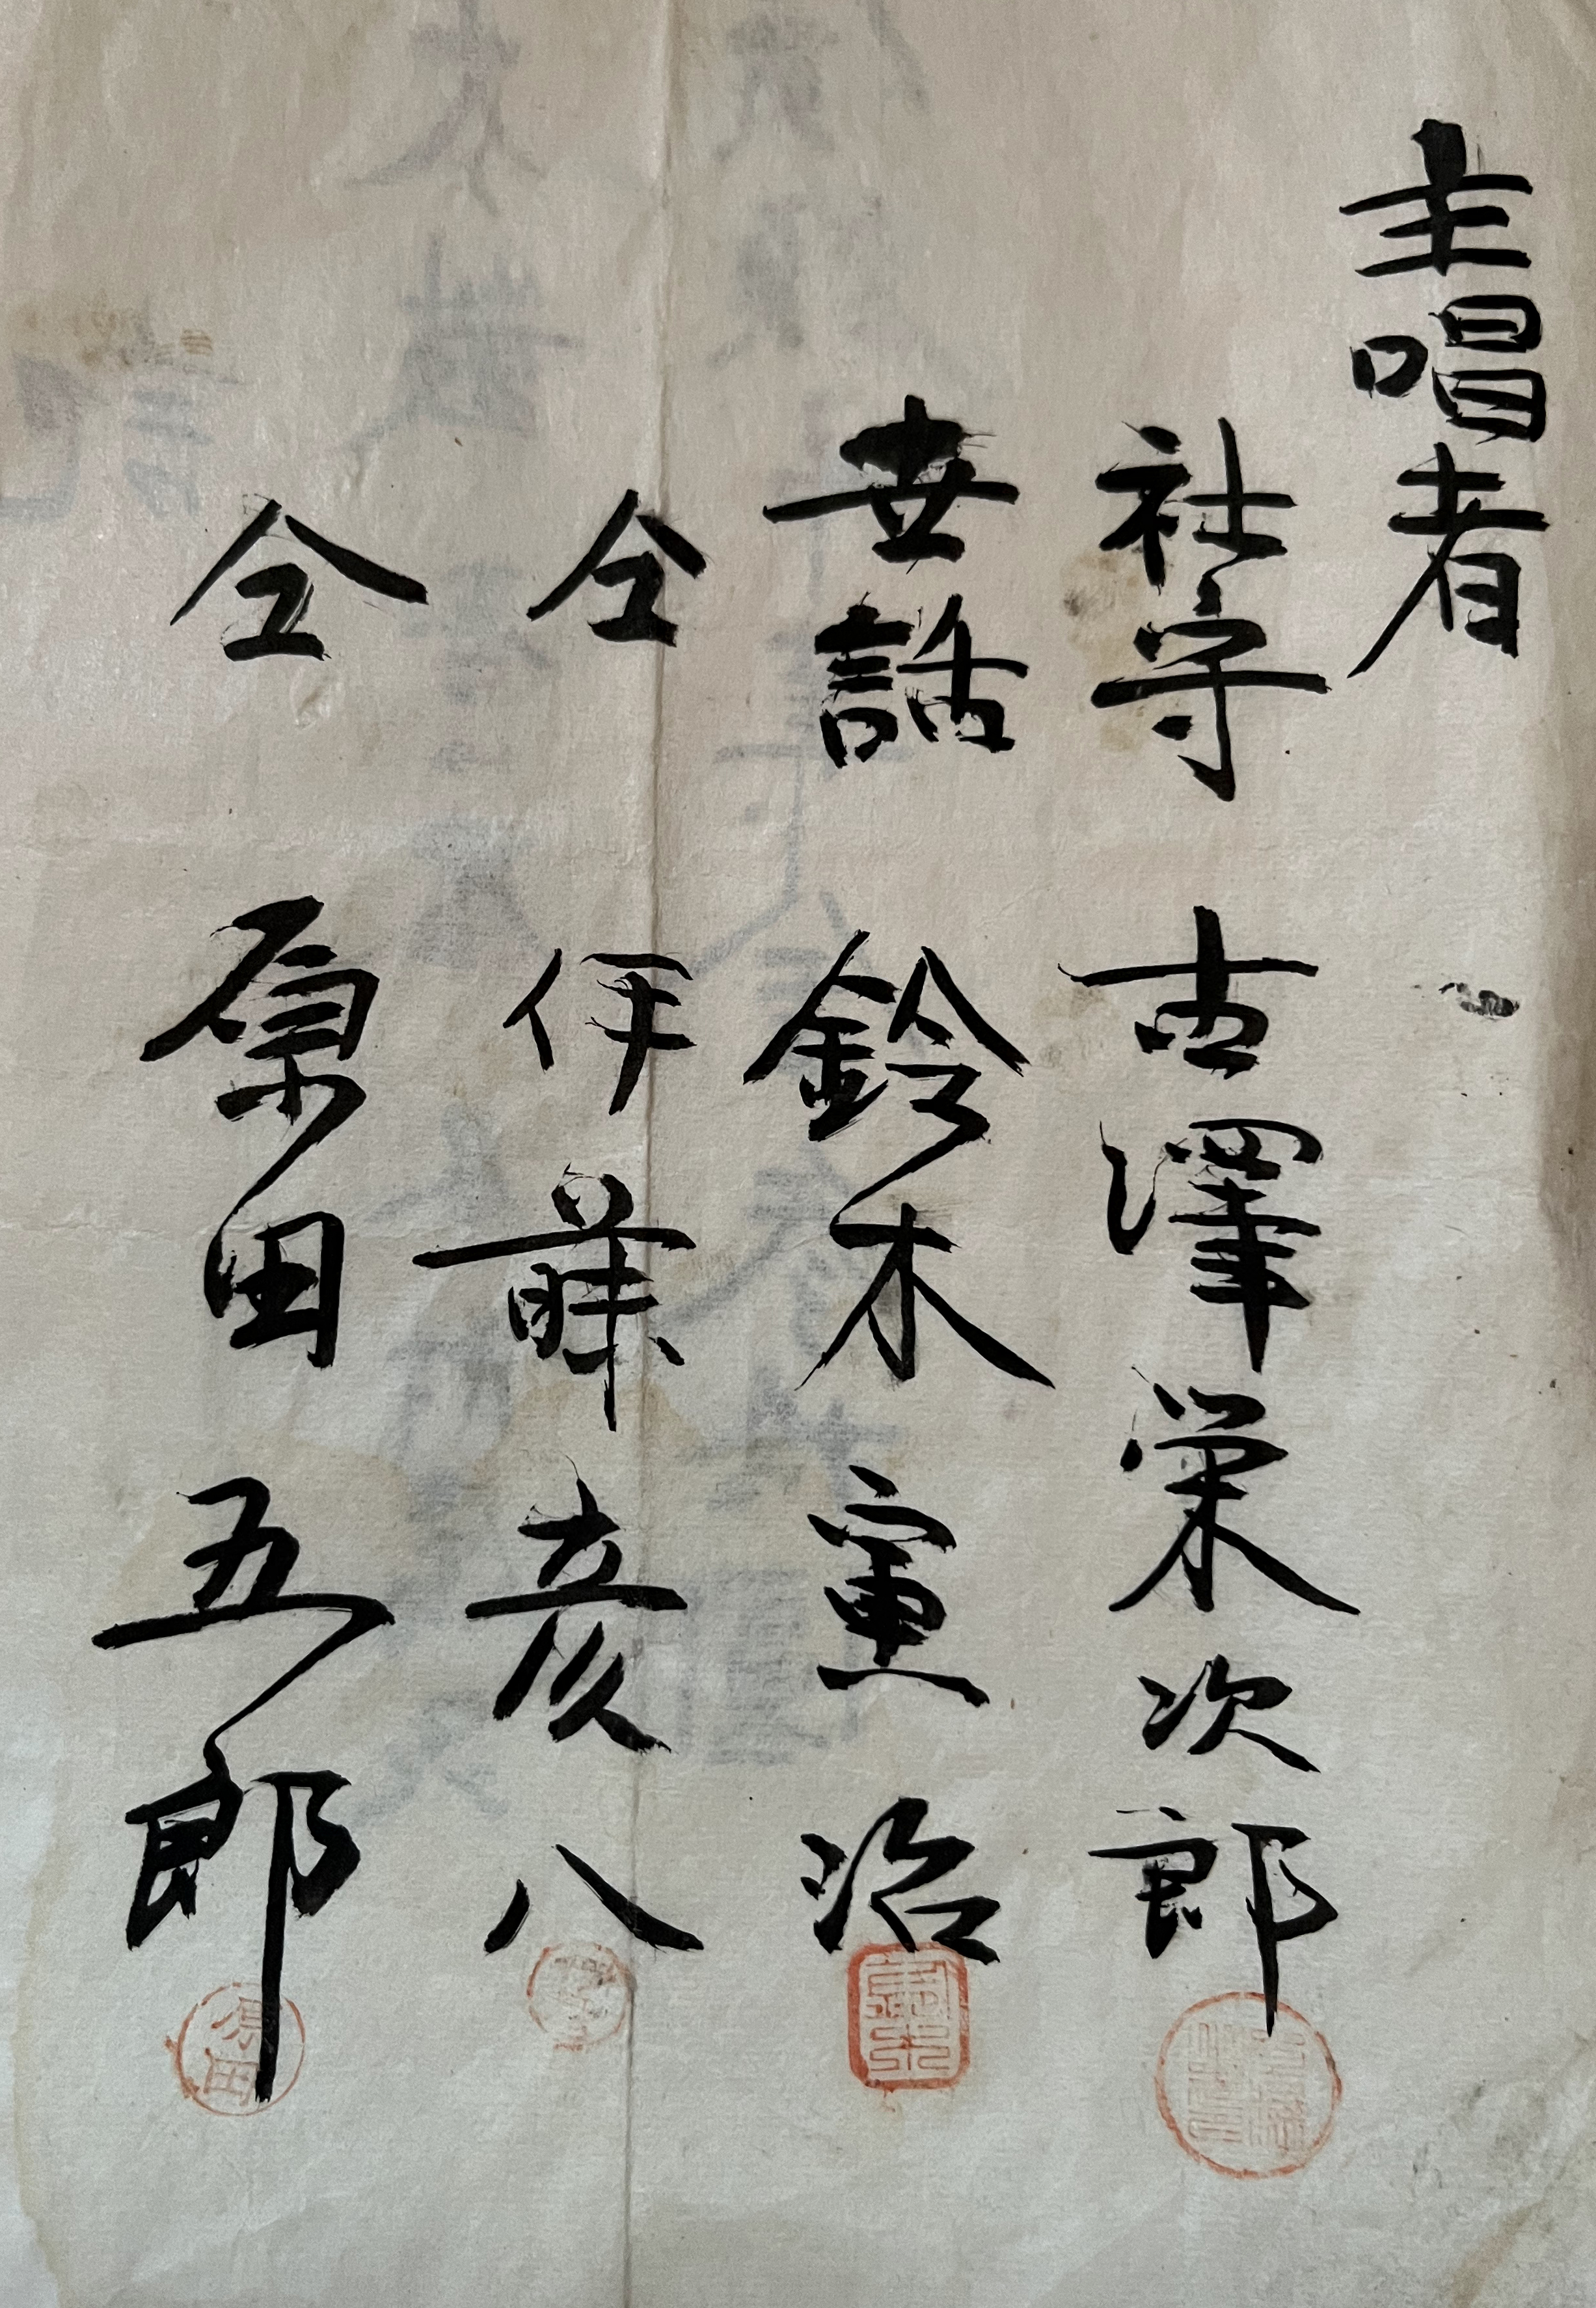 主唱者
社守 古澤栄次郎
世話 鈴木憲治
仝 伊藤彦八
仝 原田五郎
原田